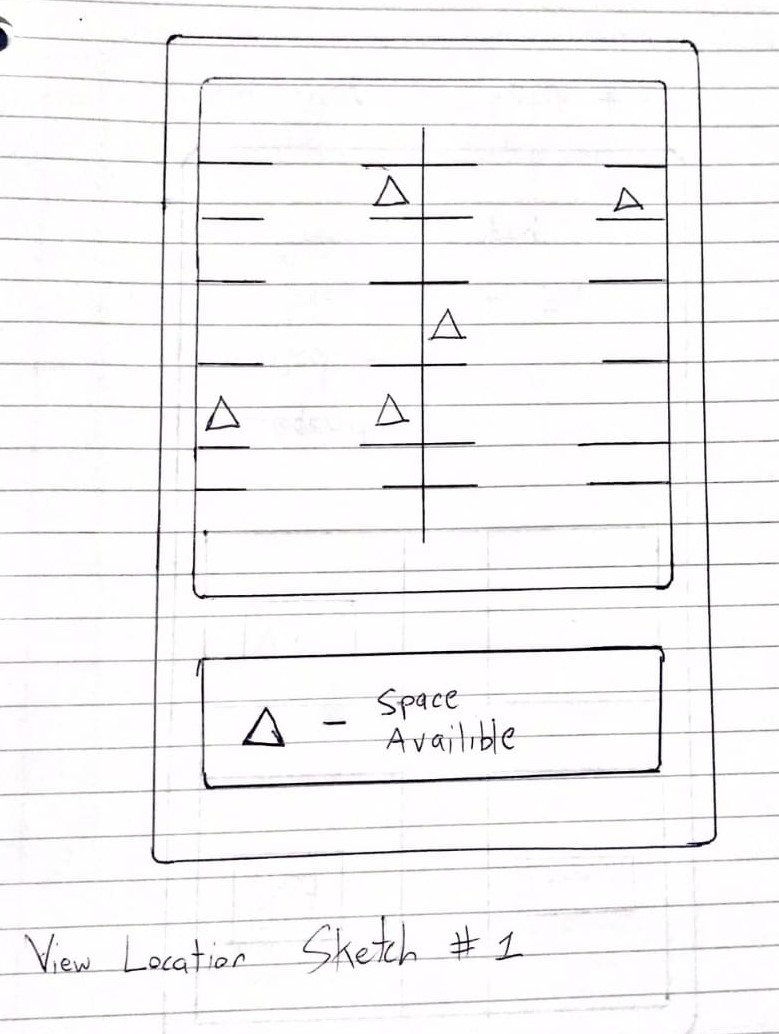 - Space
Availible
View Location Sketch # 1